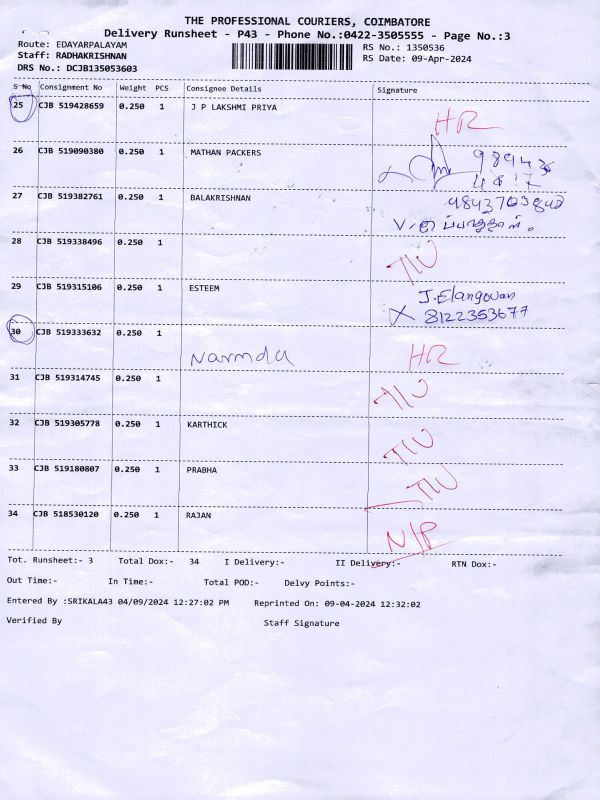 THE PROFESSIONAL COURIERS, COIMBATORE
Delivery Runsheet - P43 - Phone No.:0422-3505555 - Page No.:3
Route: EDAYARPALAYAM RS No.: 1350536
Staff: RADHAKRISHNAN RS Date: 09-Apr-2024
DRS No.: DCJB135053603
S No Consignment No Weight PCS Consignee Details Signature
25 CJB 519428659 0.250 1 J P LAKSHMI PRIYA HR
26 CJB 519090380 0.250 1 MATHAN PACKERS
27 CJB 519382761 0.250 1 BALAKRISHNAN
28 CJB 519338496 0.250 1 TIU
29 CJB 519315106 0.250 1 ESTEEM J.Elangovan
8122353677
30 CJB 519333632 0.250 1
Narmda HR
31 CJB 519314745 0.250 1 TIU
32 CJB 519305778 0.250 1 KARTHICK TIU
33 CJB 519180807 0.250 1 PRABHA TIU
34 CJB 518530120 0.250 1 RAJAN N/P
Tot. Runsheet:- 3 Total Dox:- 34 I Delivery:- II Delivery:- RTN Dox:-
Out Time:- In Time:- Total POD:- Delvy Points:-
Entered By :SRIKALA43 04/09/2024 12:27:02 PM Reprinted On: 09-04-2024 12:32:02
Verified By Staff Signature